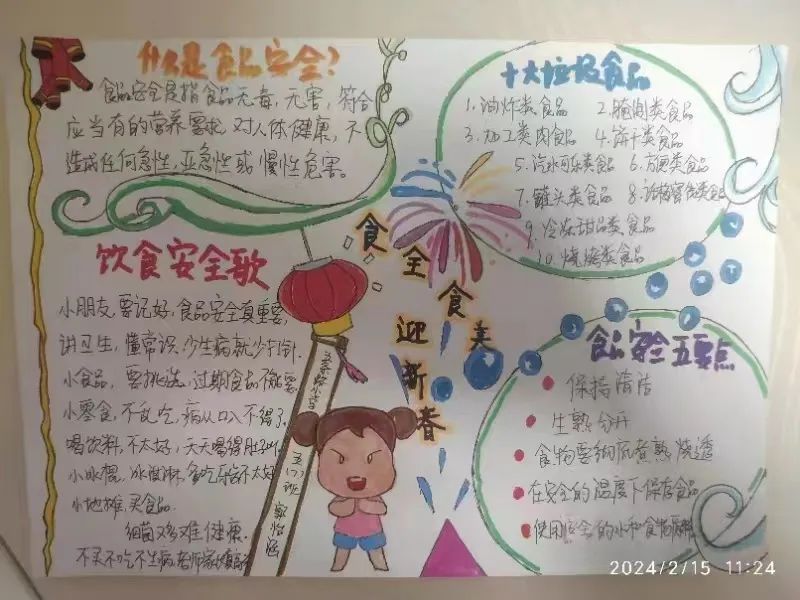 什么是食品安全?
食品安全是指食品无毒、无害,符合
应当有的营养要求,对人体健康,不
造成任何急性,亚急性或慢性危害。
饮食安全歌
小朋友,要记好,食品安全真重要,
讲卫生,懂常识,少生病就少打针.
小食品,要挑选,过期食品不能要
小零食,不乱吃,病从口入不得了
喝饮料,不太好,天天喝得肚子
小冰棍,冰淇淋,多吃 不太好
小地摊,买食品.
细菌多难健康.
不买不吃不生病,老师家长
食全食美
迎新春
五(7)班
十大垃圾食品
1.油炸类食品
2.腌制类食品
3.加工类肉食品
4.饼干类食品
5.汽水可乐类食品
6.方便类食品
7.罐头类食品
8.话梅蜜饯类食品
9.冷冻甜品类食品
10.烧烤类食品
食品安全五要点
保持清洁
生熟分开
食物要彻底煮熟烧透
在安全的温度下保存食品
使用安全的水和食物原料
2024/2/15 11:24